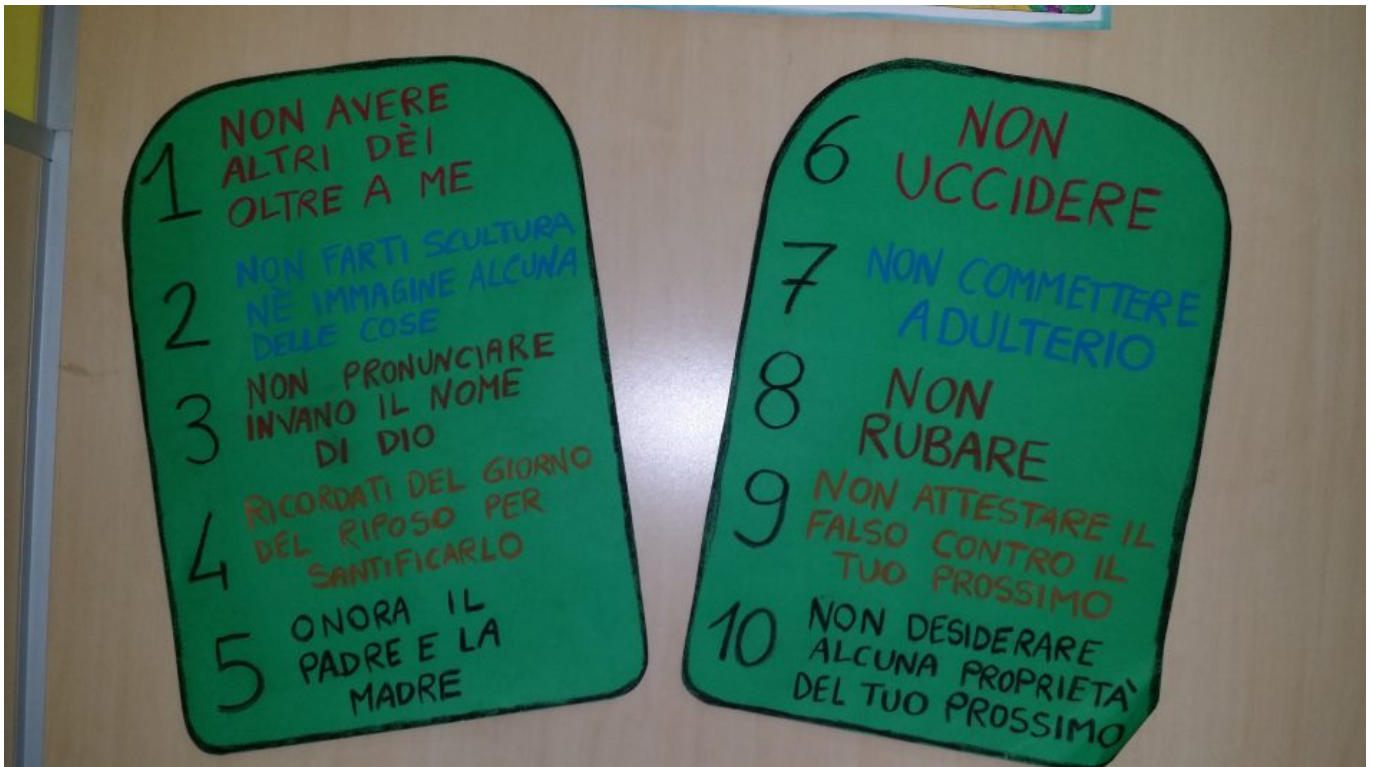 1 NON AVERE
ALTRI DÈI
OLTRE A ME
2 NON FARTI SCULTURA
NÈ IMMAGINE ALCUNA
DELLE COSE
3 NON PRONUNCIARE
INVANO IL NOME
DI DIO
4 RICORDATI DEL GIORNO
DEL RIPOSO PER
SANTIFICARLO
5 ONORA IL
PADRE E LA
MADRE
6 NON
UCCIDERE
7 NON COMMETTERE
ADULTERIO
8 NON
RUBARE
9 NON ATTESTARE IL
FALSO CONTRO IL
TUO PROSSIMO
10 NON DESIDERARE
ALCUNA PROPRIETÀ
DEL TUO PROSSIMO